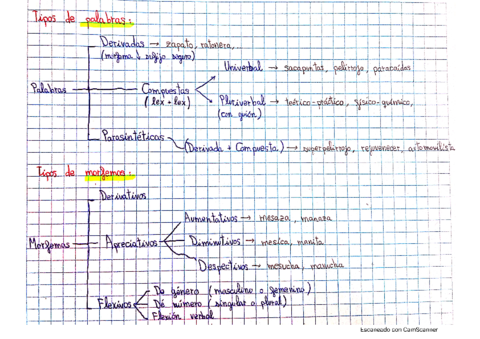 Tipos de palabras:
Derivadas → zapato, ratonera,
(morfema ↓ sufijo seguro)
Univerbal → sacapuntas, pelirroja, paracaídas
Palabras
Compuestas
(lex + lex)
Pluriverbal → teórico-práctico, físico-químico,
(con guión)
Parasintéticas
(Derivada + Compuesta) → superpelirrojo, rejuvenecer, automovilista
Tipos de morfemas:
Derivativos
Aumentativos → mesaza, manaza
Morfemas
Apreciativos
Diminutivos → mesica, manita
Despectivos → mesucha, manucha
De género (masculino o femenino)
Flexivos
De número (singular o plural)
Flexión verbal
Escaneado con CamScanner